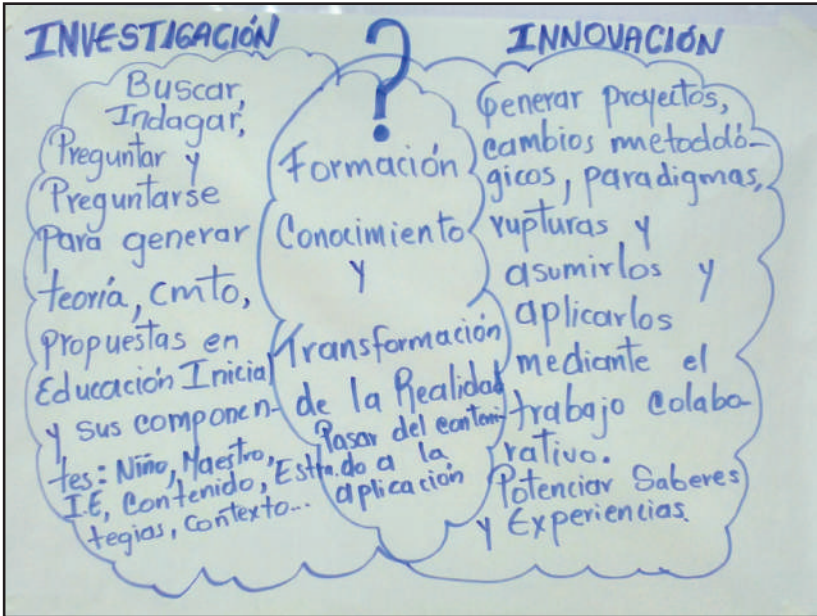 INVESTIGACIÓN
Buscar,
Indagar,
Preguntar y
Preguntarse
Para generar
teoría, cmto,
propuestas en
Educación Inicial
y sus componen-
tes: Niño, Maestro,
I.E, Contenido, Estra-
tegias, Contexto...
?
Formación
Conocimiento
Y
Transformación
de la Realidad
Pasar del conteni-
do a la
aplicación
INNOVACIÓN
Generar proyectos,
cambios metodoló-
gicos, paradigmas,
rupturas y
asumirlos y
aplicarlos
mediante el
trabajo colabo-
rativo.
Potenciar Saberes
y Experiencias.